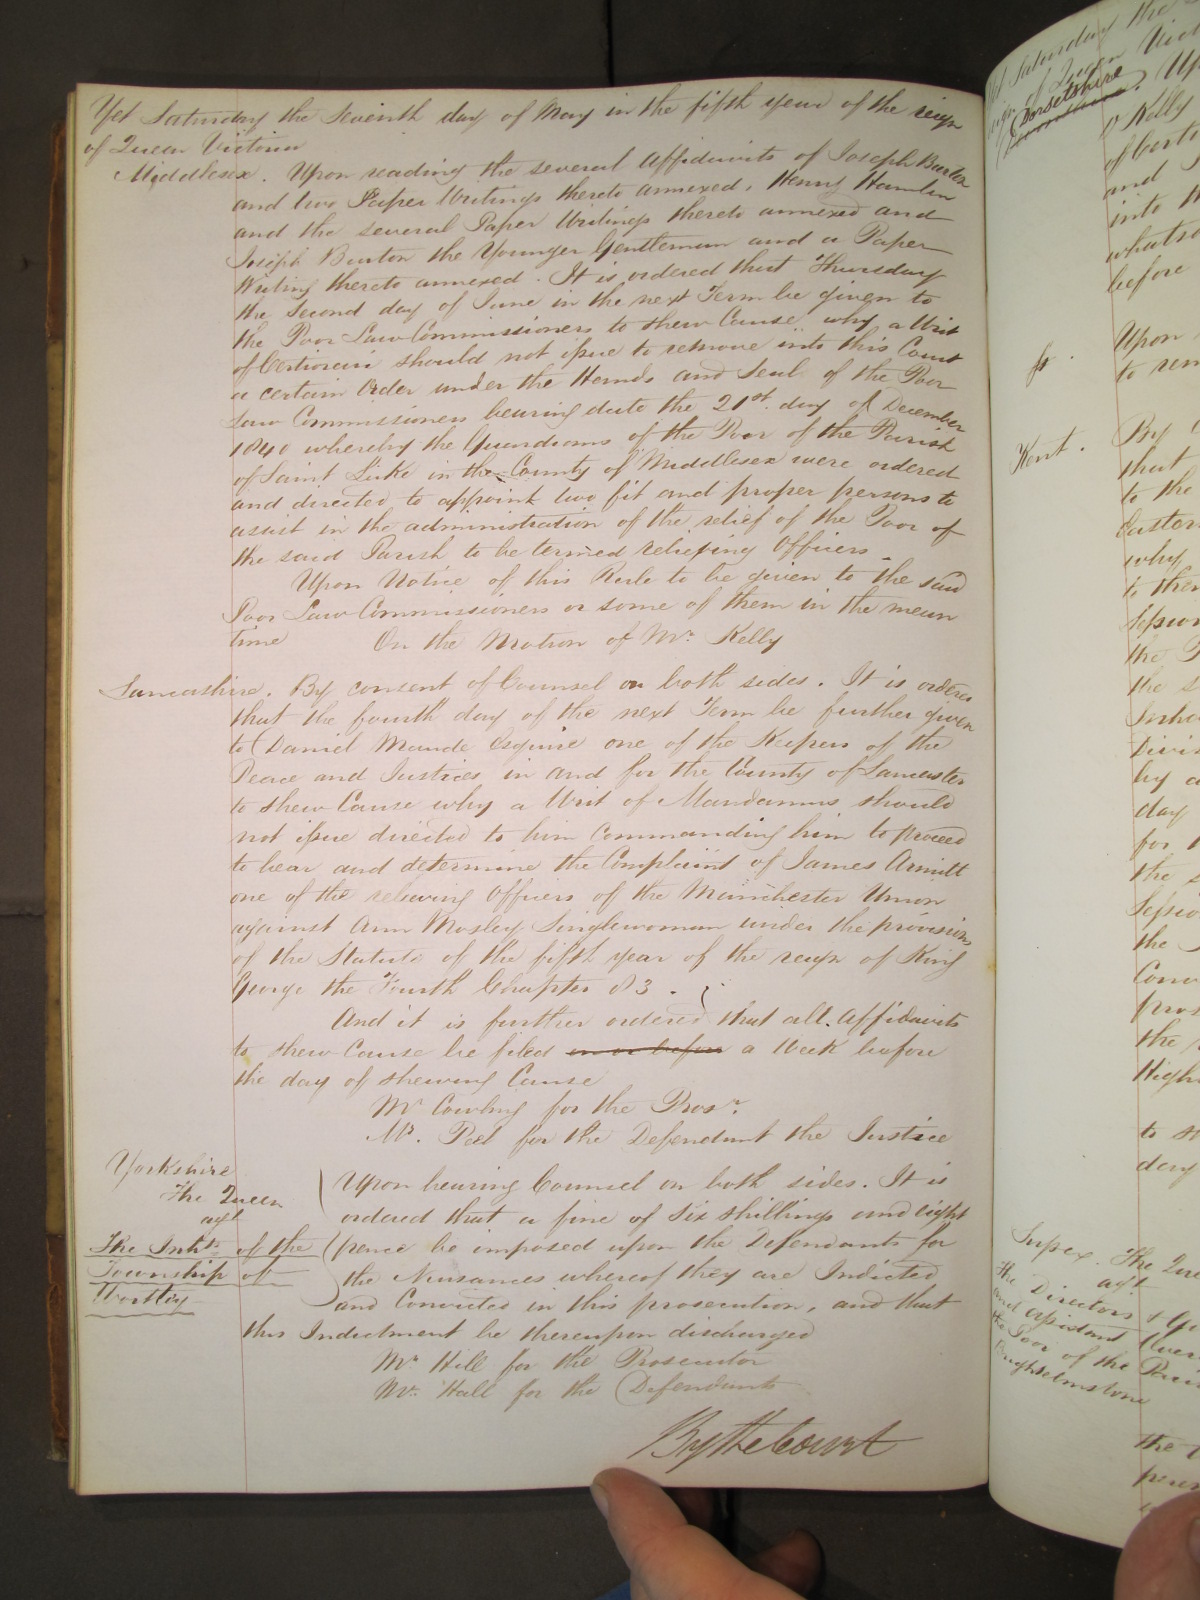 Yet Saturday the Seventh day of May in the fifth year of the reign
of Queen Victoria
Middlesex. Upon reading the several affidavits of Joseph Burton
and two Paper Writings thereto annexed, Henry Hamlin
and the several Paper Writings thereto annexed and
Joseph Burton the Younger Gentleman and a Paper
Writing thereto annexed. It is ordered that Thursday
the Second day of June in the next Term be given to
the Poor Law Commissioners to shew Cause why a Writ
of Certiorari should not issue to remove into this Court
a certain Order under the Hands and Seal of the Poor
Law Commissioners bearing date the 21st. day of December
1840 whereby the Guardians of the Poor of the Parish
of Saint Luke in the County of Middlesex were ordered
and directed to appoint two fit and proper persons to
assist in the administration of the relief of the Poor of
the said Parish to be termed relieving Officers
Upon Notice of this Rule to be given to the said
Poor Law Commissioners or some of them in the mean
time On the Motion of Mr. Kelly
Lancashire. By consent of Counsel on both sides. It is ordered
that the fourth day of the next Term be further given
to Daniel Maude Esquire one of the Keepers of the
Peace and Justices in and for the County of Lancaster
to shew Cause why a Writ of Mandamus should
not issue directed to him Commanding him to proceed
to hear and determine the Complaint of James Armitt
one of the relieving Officers of the Manchester Union
against Ann Mosley Singlewoman under the provisions
of the Statute of the fifth year of the reign of King
George the Fourth Chapter 83.
And it is further ordered that all affidavits
to shew Cause be filed on or before a Week before
the day of shewing Cause
Mr Cowling for the Prosr.
Mr. Peel for the Defendant the Justice
Yorkshire
The Queen
agt
The Inhts. of the
Township of
Wortley
Upon hearing Counsel on both sides. It is
ordered that a fine of Six shillings and eight
pence be imposed upon the Defendants for
the Nuisances whereof they are Indicted
and Convicted in this prosecution, and that
this Indictment be thereupon discharged
Mr Hill for the Prosecutor
Mr. Hall for the Defendants
By the Court
Yet Saturday the
of Queen Vict
Dorsetshire
Kelly
of Certi
and
into th
whatso
before
Upon
to rem
Kent. By
that
to the
Easter
why
to them
Session
the P
the s
Inha
Divis
by a
day
for
the s
Sessio
the
Conv
pros
the
High
to s
day
Sussex. The Quee
agt
The Directors & Gu
and assistant
the Poor of the Pari
Brighthelmstone
the